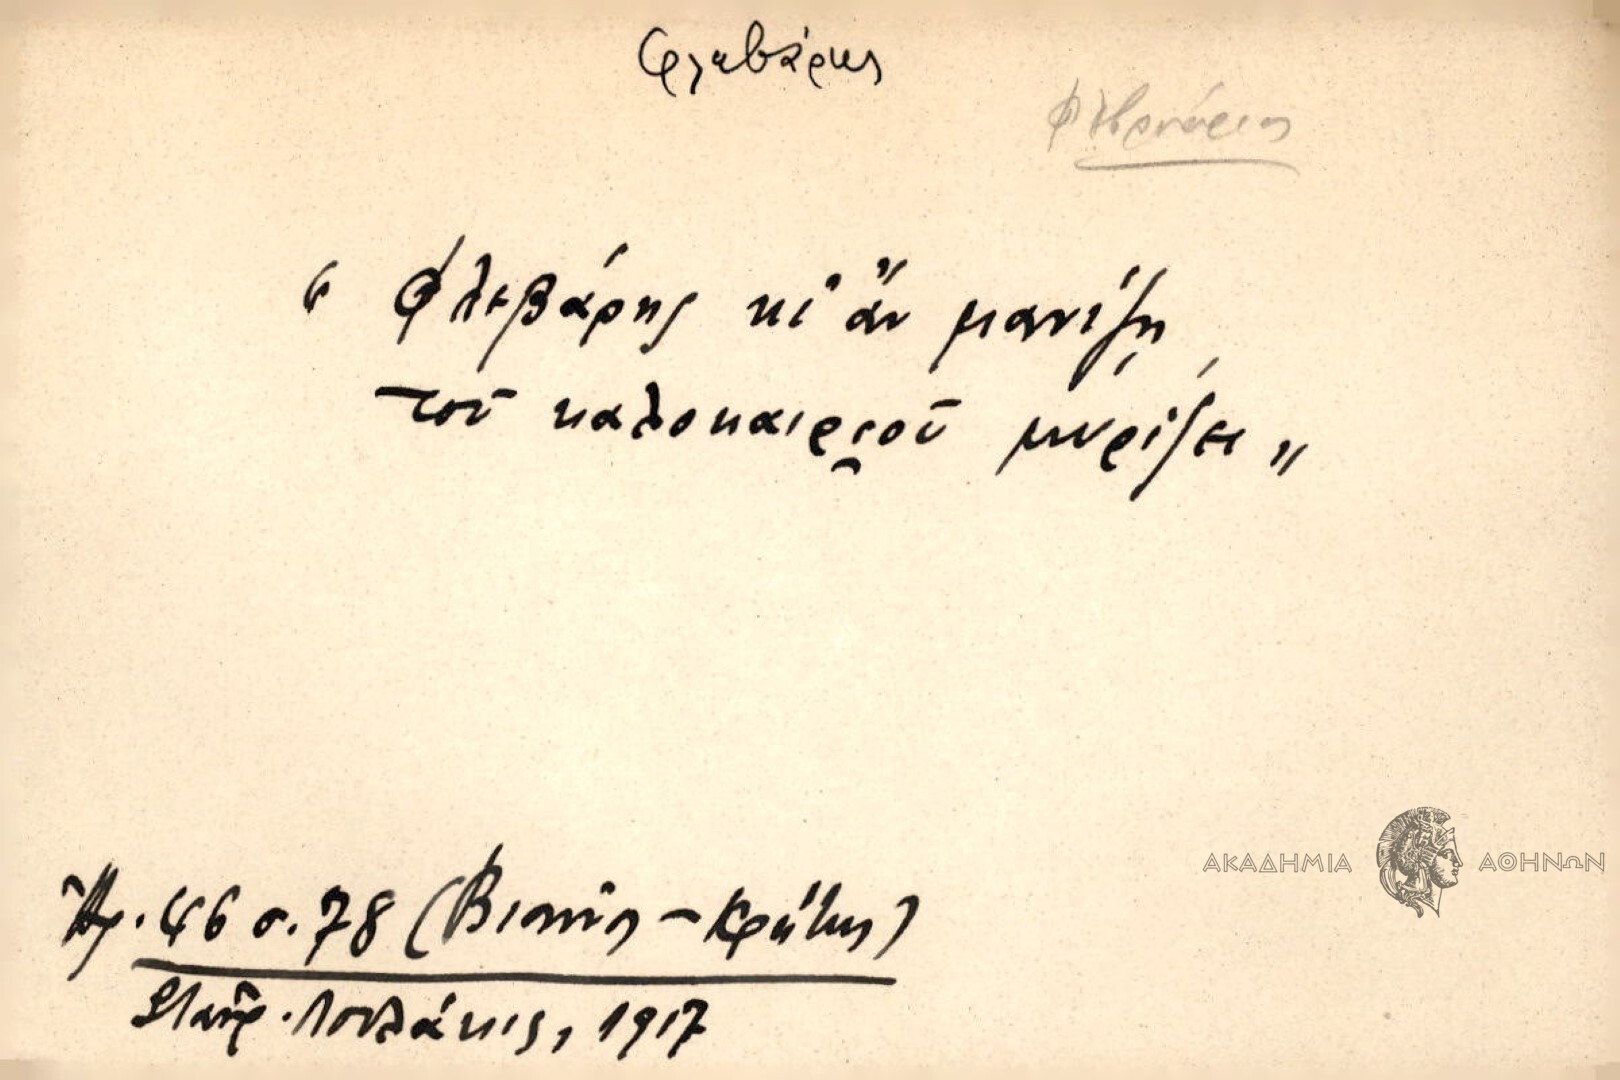 Φλεβάρης
Φεβρουάριος
“ Φλεβάρης κι' ἄν μανίζῃ,
τοῦ καλοκαιριοῦ μυρίζει „
Ἀρ. 46 σ. 78 (Βιάννος – Κρήτης)
Σταῦρ. Λουλάκις, 1917
ΑΚΑΔΗΜΙΑ ΑΘΗΝΩΝ